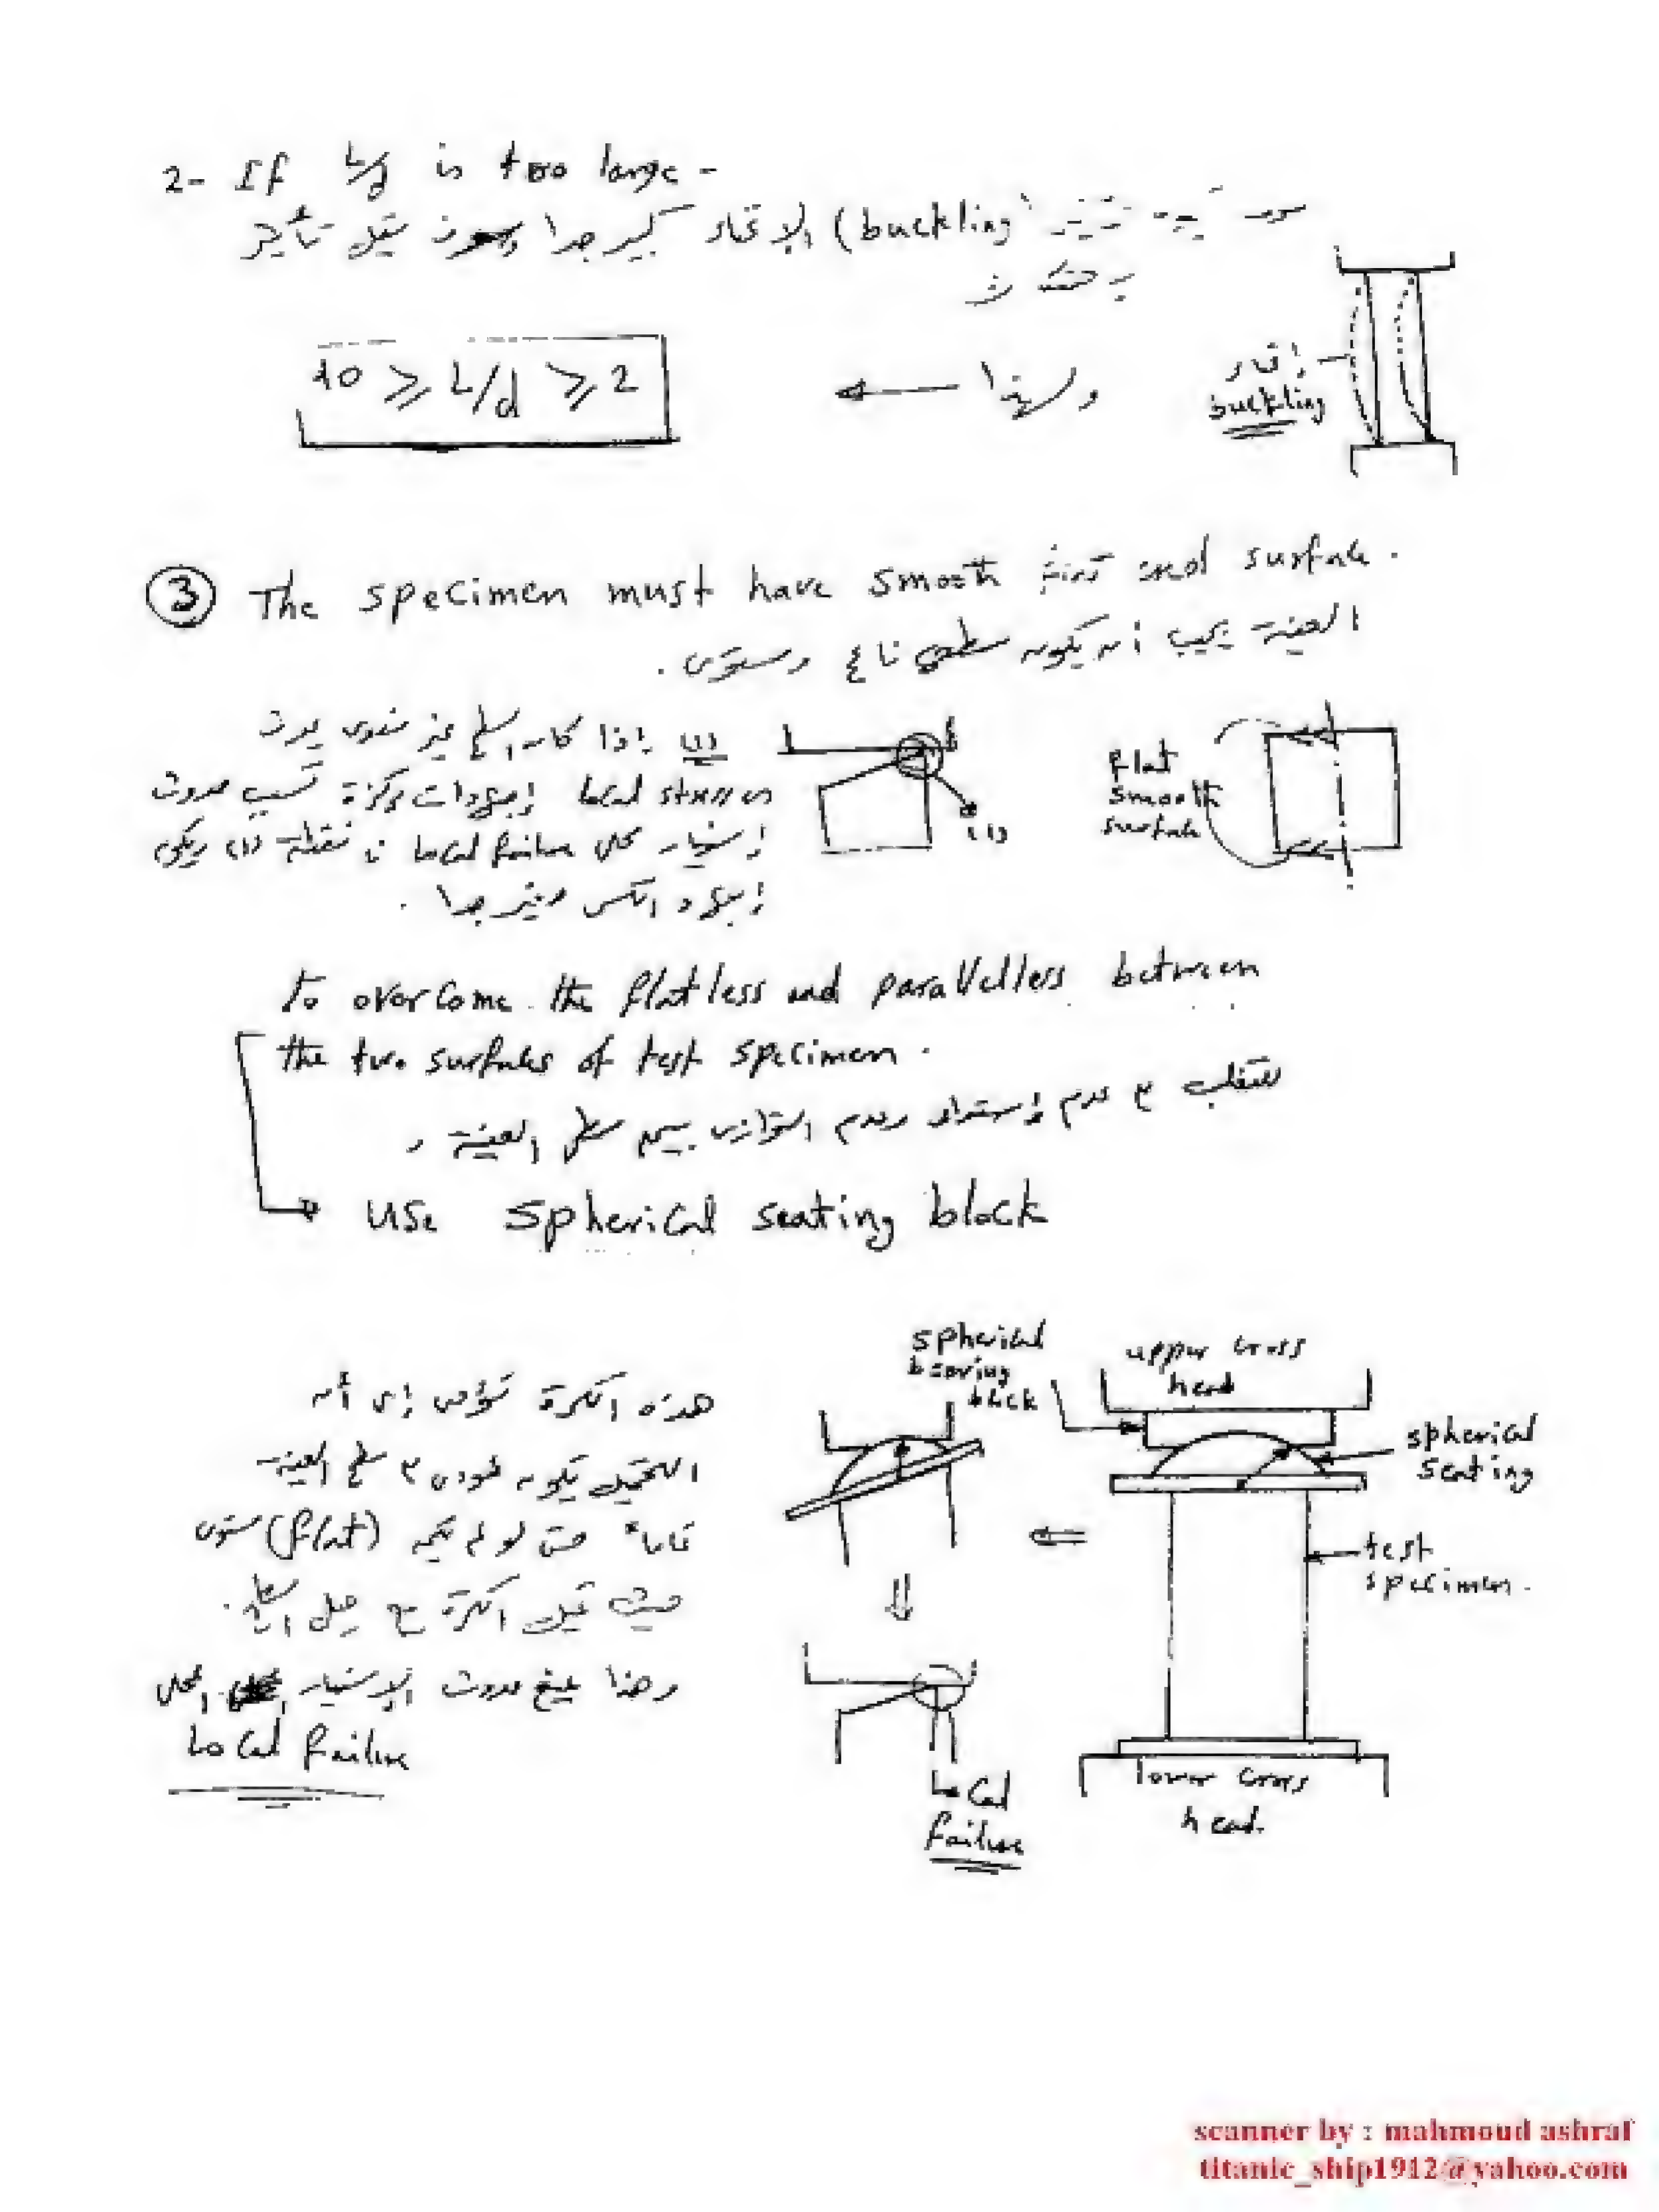 2- If L/d is too large -
(buckling) الإنبعاج كبير جدا وسوف يقل تأثير
الاحتكاك
10 ⩾ L/d ⩾ 2
ولهذا
buckling
③ The specimen must have smooth end surface.
العينة يجب أن يكون سطحى ناعم ومستوى.
(1) إذا كان السطح غير مستوى يحدث
local stresses إجهادات مركزة تسبب حدوث
إنهيار محلى local failure فى نقطة (1) ويكون
إجهاد الكسر صغير جدا.
(1)
Flat
smooth
surface
To overcome the flatless and parallelless between
the two surfaces of test specimen.
للتغلب على عدم إستواء وعدم التوازى بين سطحى العينة
use spherical seating block
هذه الكرة تؤدى إلى أن
التحميل يكون عمودى على سطح العينة
تماماً حتى لو لم يكن (flat) مستوى
حيث تميل الكرة مع ميل السطح.
وهذا يمنع حدوث الإنهيار المحلى
Local failure
spherical
bearing
block
upper cross
head
spherical
seating
test
specimen.
lower cross
head.
Local
failure
scanner by : mahmoud ashraf
titanic_ship1912@yahoo.com